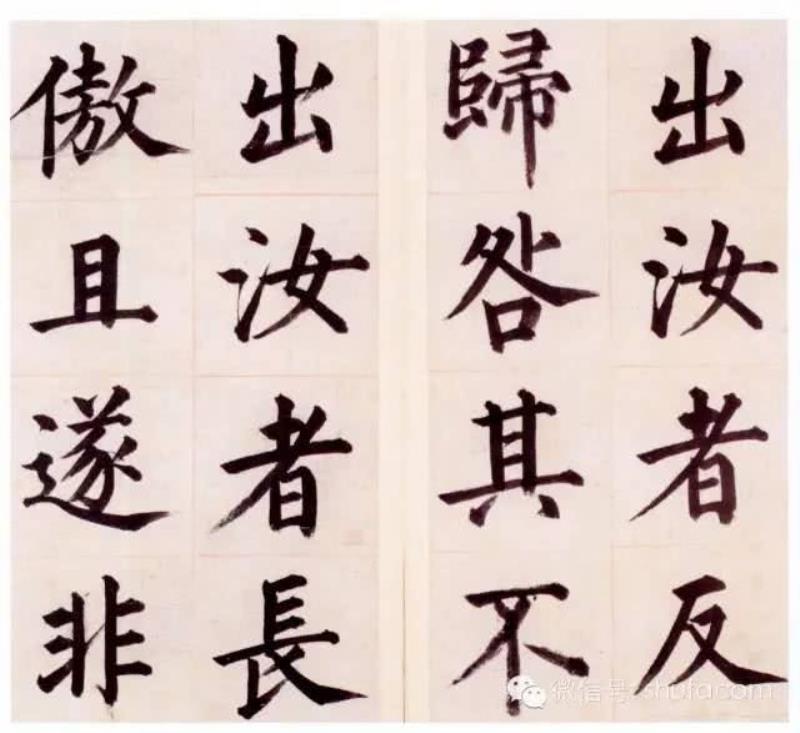 出汝者反
歸咎其不
出汝者長
傲且遂非
微信号: shufacom